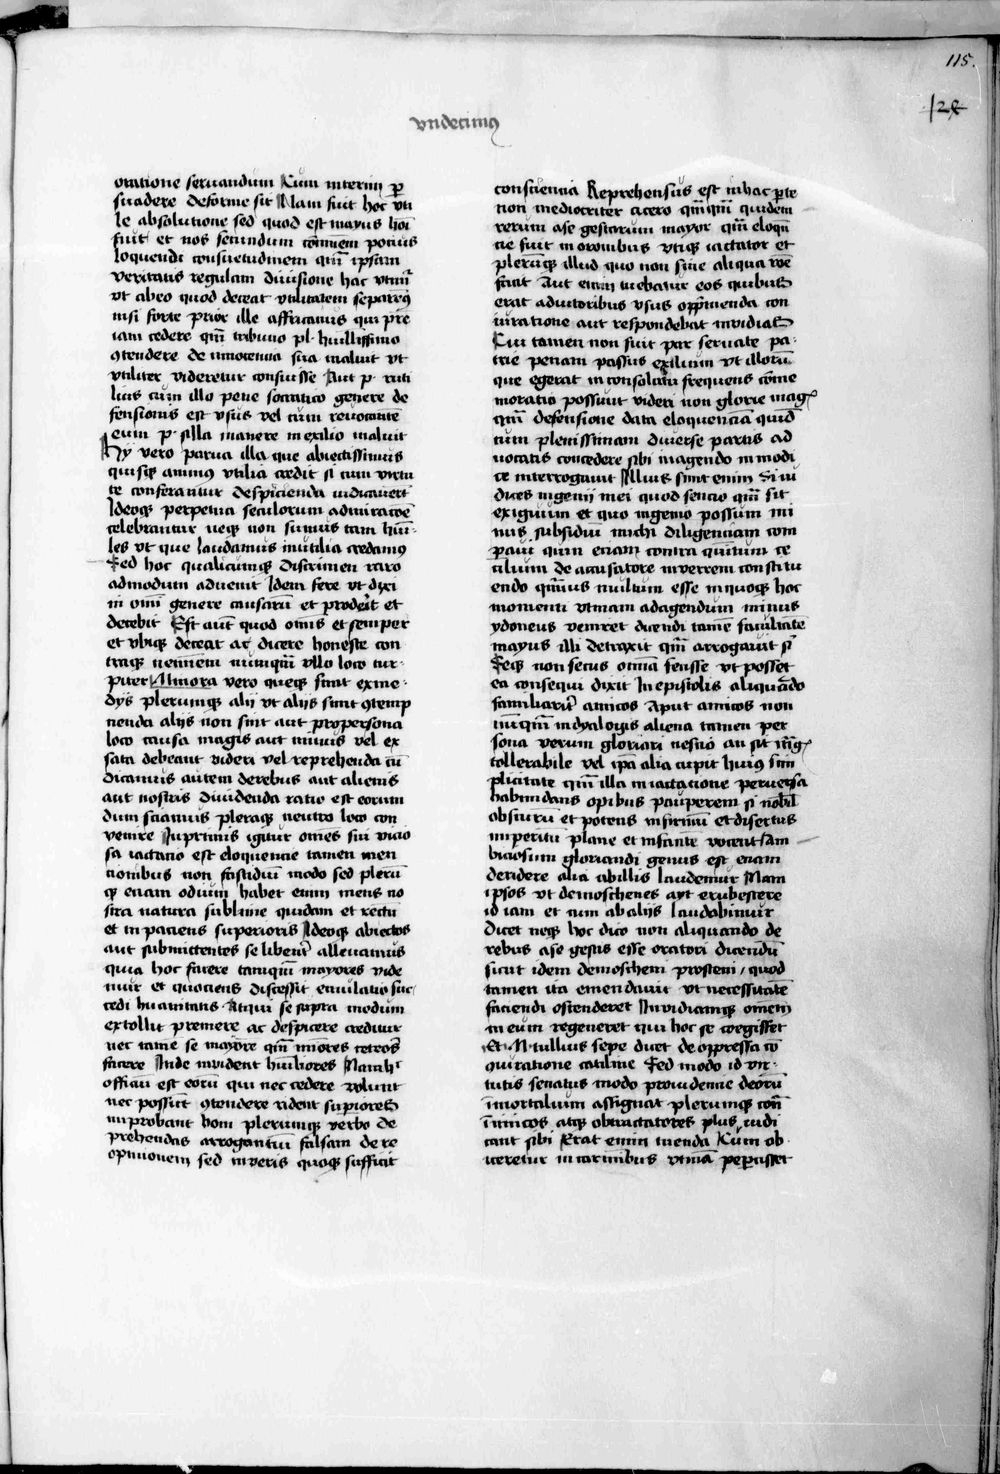 115.
128
vndecimus
oratione seruandum Cum interim per
suadere deforme sit Nam fuit hoc vti
le absolutione sed quod est mayus homi
fuit et nos secundum communem potius
loquendi consuetudinem quam ipsam
veritatis regulam diuisione hac vtimur
vt ab eo quod deceat vtilitatem separemus
nisi forte prior ille affricanus qui patria
iam cedere quam tribuno pl. humillissimo
contendere de innocentia sua maluit vt
vtiliter videretur consuisse Aut p. ruti
lius cum illo pene socratico genere de
fensionis est vsus vel cum reuocante
eum p. silla manere in exilio maluit
Hy vero parua illa que abiectissimus
quisque animus vtilia credit si cum virtu
te conferantur despicienda iudicauerunt
Ideoque perpetua seculorum admiratione
celebrantur neque nos sumus tam humi
les vt que laudamus inutilia credamus
Sed hoc qualicumque discrimen raro
admodum aduenit Idem fere vt dixi
in omni genere causarum et proderit et
decebit Est autem quod omnis et semper
et vbique deceat ac dicere honeste con
traque neminem numquam vllo loco tur
piter Minora vero queque sunt ex me
dys plerumque alii vt aliis sunt contemp
nenda aliis non sint aut pro persona
loco causa magis aut minus vel ex
sata debeant videri vel reprehenda cum
dicamus autem de rebus aut alienis
aut nostris diuidenda ratio est eorum
dum sciamus pleraque neutro loco con
venire Inprimis igitur omnes sui vicio
sa iactatio est eloquencie tamen men
tionibus non fastidium modo sed plerum
que etiam odium habet enim mens no
stra natura sublime quidam et rectum
et inpaciens superioris Ideoque abiectos
aut submittentes se libenter alleuamus
quia hoc facere tamquam mayores vide
mur et quotiens discessit emulatio suc
cedit humanitas Atqui se supra modum
extollit premere ac despicere creditur
nec tamen se mayorem quam minores ceteros
facere Inde invident humiliores Nam hoc
officium est eorum qui nec cedere volunt
nec possunt contendere rident superiores
improbant boni plerumque verbo de
prehendas arrogantium falsam de re
opinionem sed in veris quoque sufficit
consciencia Reprehensus est in hac parte
non mediocriter cicero quamquam quidem
rerum a se gestarum mayor quam eloquen
tie fuit in oronibus vtique iactator et
plerumque illud quo non sine aliqua ratione
facit Aut enim tuebatur eos quibus
erat aduitoribus vsus opprimenda con
iuratione aut respondebat inuidias
Cui tamen non fuit par seruate pa
trie penam passus exilium vt illorum
que egerat in consolatu frequens comme
moratio possunt videri non glorie magis
quam defensione data eloquenciam quidem
cum plenissimam diuerse partis ad
uocatis concedere sibi in agendo in modi
ce interroganit Illius sunt enim Si iu
dices ingenii mei quod sentio quam sit
exiguum et quo ingenio possum mi
nus subsidium michi diligenciam com
paui quin etiam contra quintum ce
cilium de accusatore in verrem constitu
endo quamuis multum esse in quoque hoc
momenti vtinam ad agendum minus
ydoneus veniret dicendi tamen facultatem
mayus illi detraxit quam arrogauit sibi
Seque non secus omnia fensse vt posset
ea consequi dixit In epistolis aliquando
familiarium amicos Aput amicos non
numquam in dyalogis aliena tamen per
sona verum gloriari nescio an sit magis
tollerabile vel ipsa alia cupit huius sim
plicitate quam illa in iactacione peruersa
habundans opibus pauperem si nobil
absurum et potens infirmum et disertus
imperitum plane et infantem vocent am
biciosum gloriandi genus est etiam
deridere alia ab illis laudemur Nam
ipsos vt demoschenes ayt erubescere
id iam et cum ab aliis laudabimur
Dicet neque hoc dico non aliquando de
rebus a se gestis esse oratori dicendum
sicut idem demoschem prosteni, quod
tamen ita emendauit vt necessitatem
faciendi ostenderet Inuidiamque omnem
in eum regeneret qui hoc se coegisset
Et M. tullius sepe dicet de oppressa con
quiratione catiline Sed modo id vir
tutis senatus modo prouidencie deorum
immortalium assignat plerumque contra
inimicos atque obtractatores plus vndi
cant sibi Erat enim tuenda Cum ob
iceretur in carminibus vtinam pepercisset